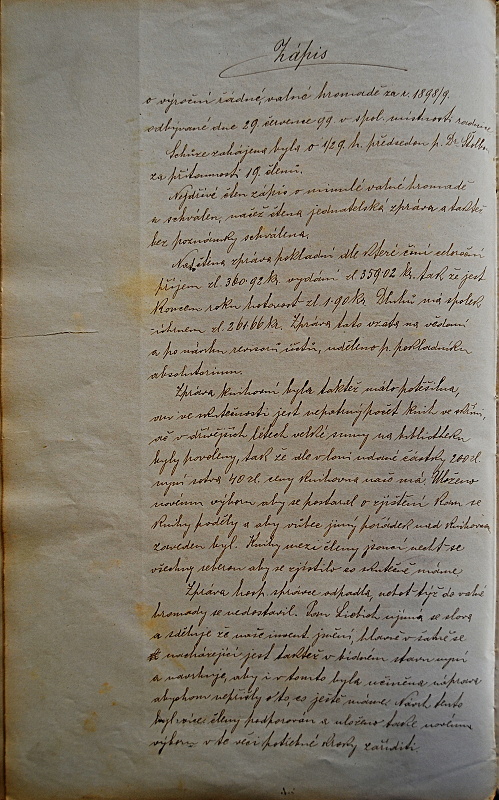 Zápis
o výroční řádné valné hromadě za r. 1898/9.
odbývané dne 29. července 99. v spol. místnosti radnice
Schůze zahájena byla o 1/29 h. předsedou p. Dr.
za přítomnosti 19. členů.
Nejdříve čten zápis o minulé valné hromadě
a schválen, načež čtena jednatelská zpráva a taktéž
bez poznámky schválena.
Načtena zpráva pokladní dle které činí celoroční
příjem zl. 360·92 kr. vydání zl. 359·02 kr. tak že jest
koncem roku hotovost zl. 1·90 kr. Dluhů má spolek
úhrnem zl. 261·66 kr. Zpráva tato vzata na vědomí
a po návrhu revisorů účtů, uděleno p. pokladníku
absolutorium.
Zpráva knihovní byla taktéž málo potěšilna,
an ve skutečnosti jest nepatrný počet knih ve skříni,
ač v dřívějších létech velké sumy na bibliotheku
byly povoleny, tak že dle vloni udané částky 200 zl.
nyní sotva 40 zl. ceny knihovna naše má. Uloženo
novému výboru aby se postaral o zjištění kam se
knihy poděly a aby vůbec jiný pořádek nad knihovnou
zaveden byl. Knihy mezi členy jsoucí nechť se
všechny seberou aby se zjistilo co skutečně máme.
Zpráva hosp. správce odpadla, neboť týž do valné
hromady se nedostavil. Pan Liebich ujímá se slova
a sděluje že naše invent. jmění, hlavně v šatně se
nacházející jest taktéž v bídném stavu nyní
a navrhuje, aby i v tomto byla učiněna náprava
abychom nepřišly o to, co ještě máme. Návrh tento
byl více členy podporován a uloženo také novému
výboru v té věci potřebné kroky zaříditi.